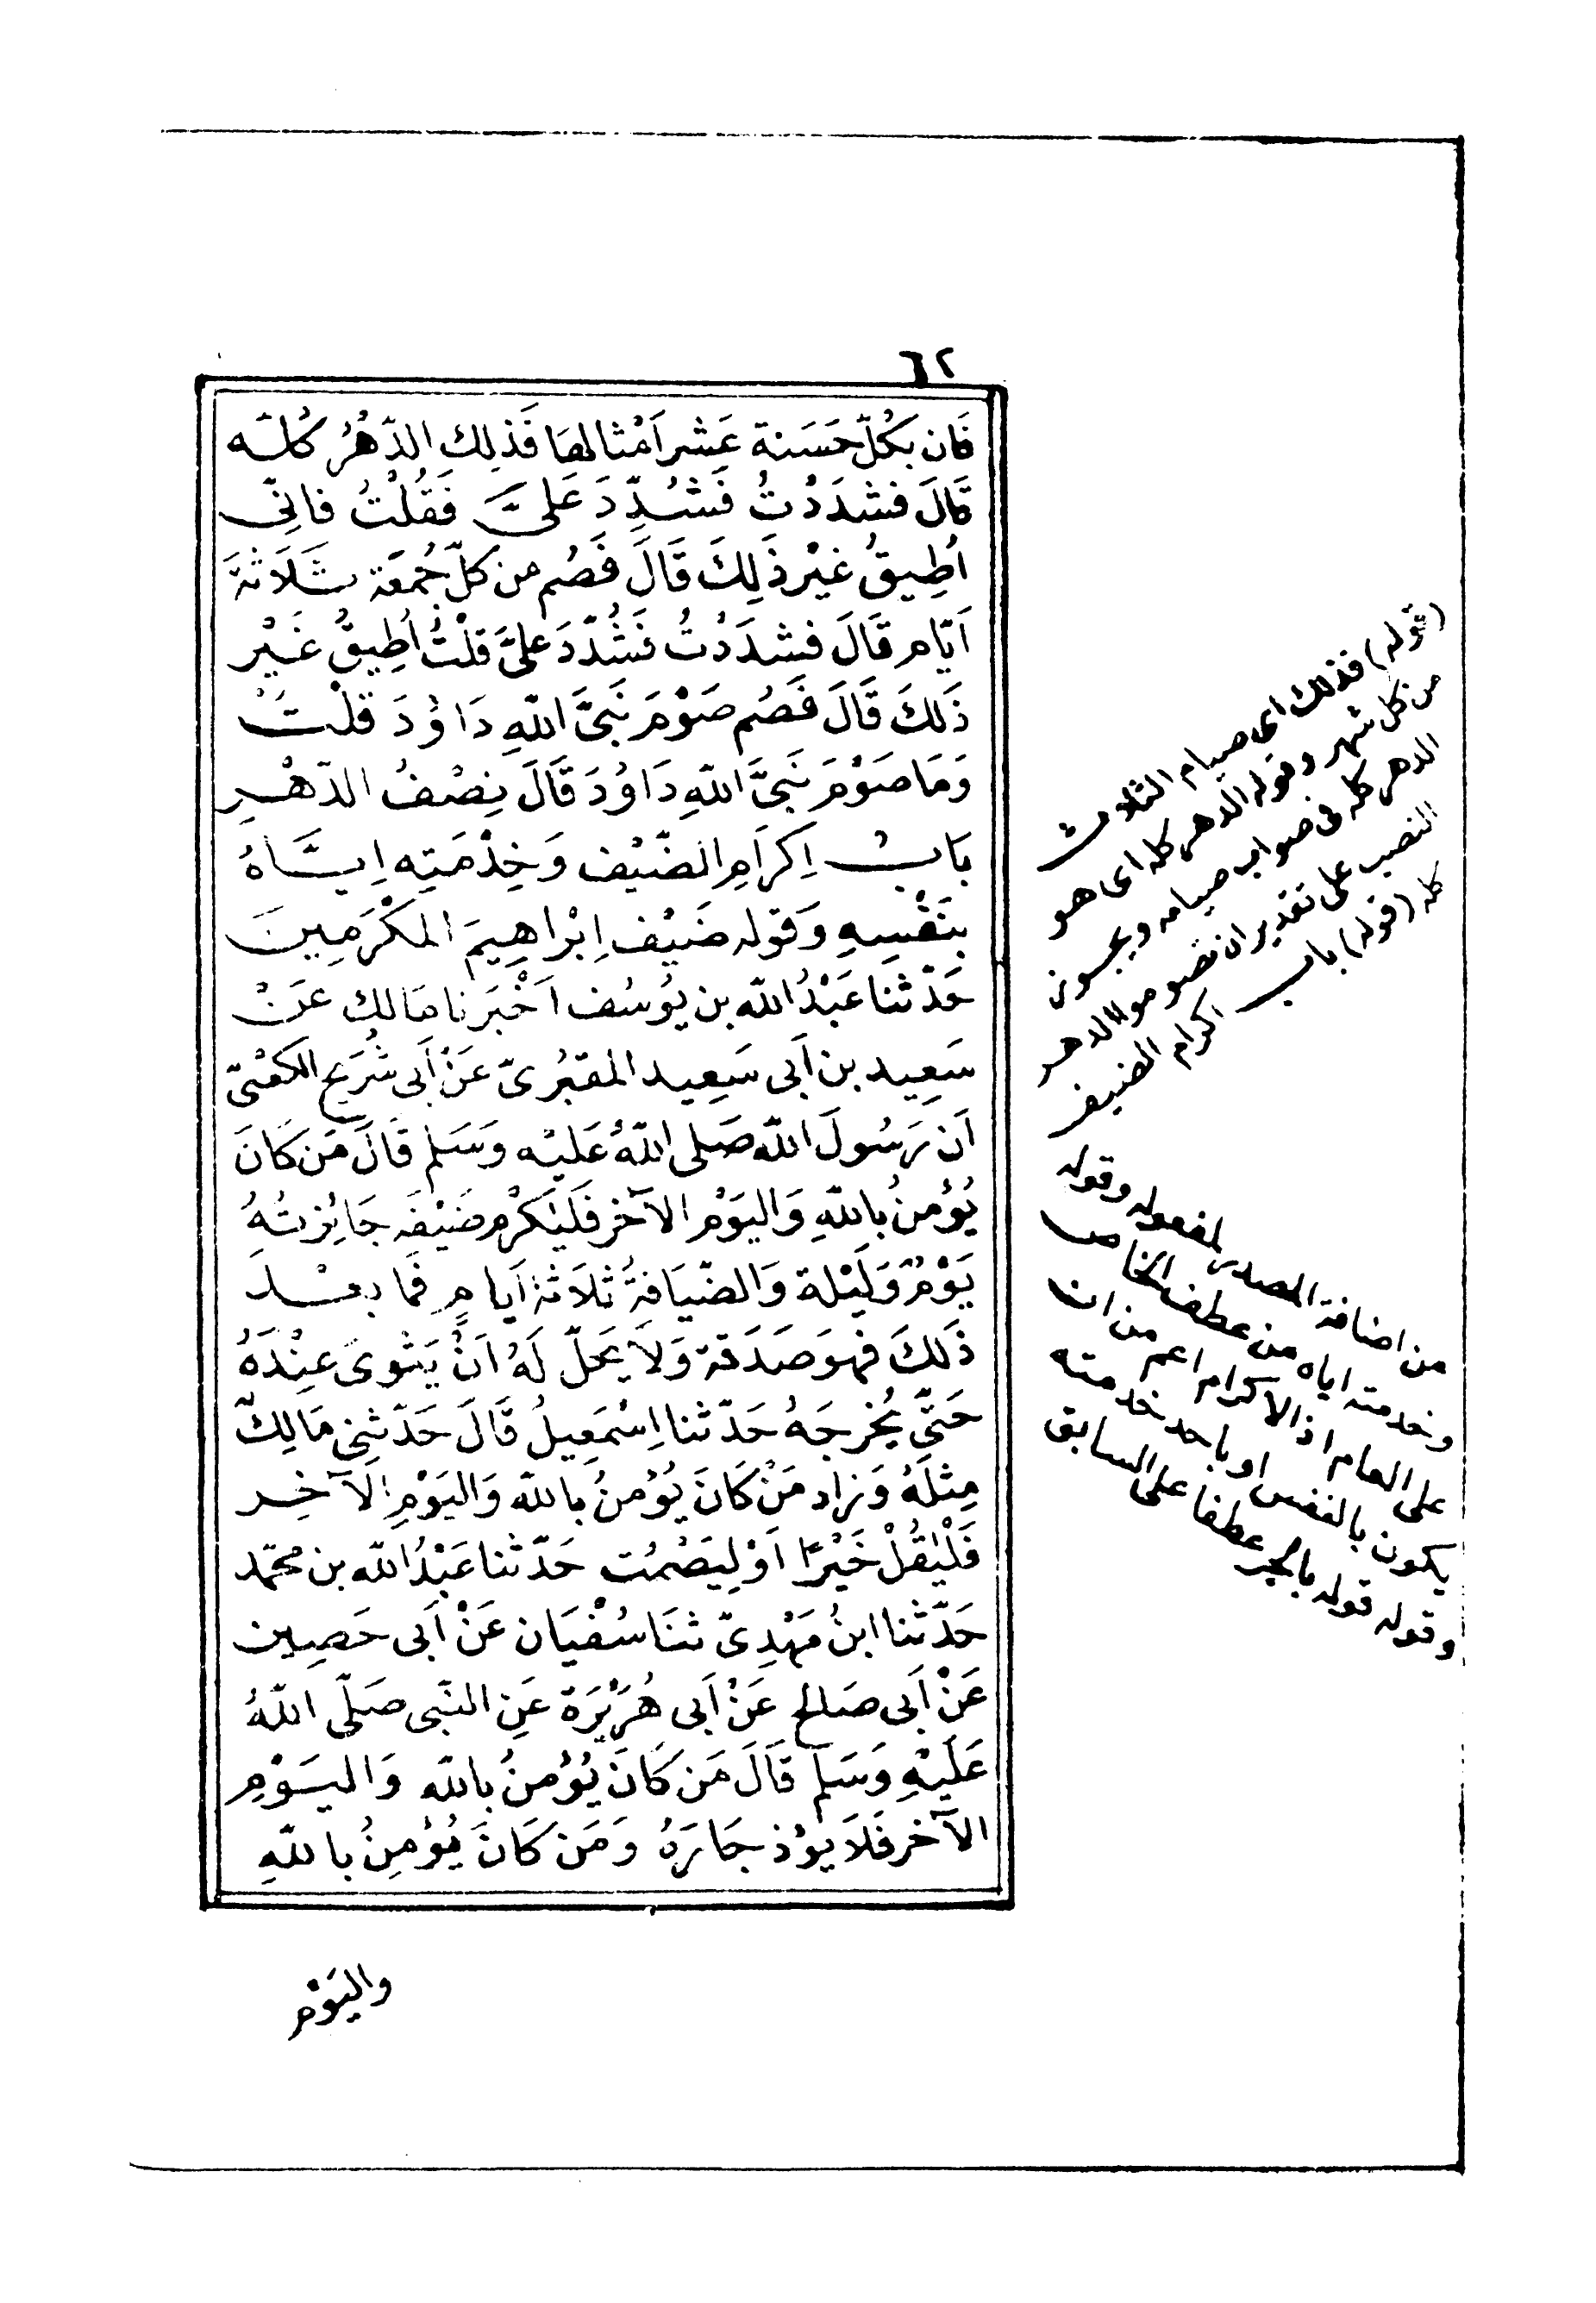 ٦٢
فَان بكُلّ حَسَنة عَشر اَمْثالهَا فَذلِك الدّهْرُ كُلّه
قَالَ فشدَدْتُ فَشُدِّدَ عَلىَّ فَقُلْتُ فانِّى
أُطِيقُ غيْر ذَلِكَ قَالَ فَصُم من كلّ جُمعَة ثَلَاثةَ
اَيّام قَالَ فشدَدْتُ فَشُدّدَ علىَّ قلْتُ أُطِيقُ غَيْر
ذَلكَ قَالَ فَصُم صَوْمَ نَبىَّ اللّهِ دَاوُدَ قُلْتُ
وَمَا صَوْمَ نَبىَّ اللّهِ دَاوُدَ قَالَ نِصْفُ الدّهْرِ
بَابُ اِكرَامِ الضّيْف وَخِدْمَتِه اِيَّاهُ
بنَفْسِهِ وَقوله ضَيْف اِبْرَاهِيمَ المكْرَمِينَ
حَدّثنا عَبْدُ اللّه بن يُوسُف اَخْبَرنا مَالك عَنْ
سَعِيد بن اَبى سَعِيد المقبُرىّ عَنْ اَبى شُرَيح الكعْبىّ
اَن رَسُولَ اللّه صَلى اللّهُ عَليْه وَسَلم قَالَ مَن كَانَ
يُؤْمنُ بِاللّهِ وَاليَوْم الآخر فَليُكرْم ضَيْفَه جَائزتُهُ
يَوْمٌ وَليْلة وَالضّيَافةُ ثلَاثةُ اَيامٍ فَما بعْدَ
ذَلكَ فهوَ صَدَقة وَلَا يَحلّ لَهُ اَنْ يَثوىَ عِنْدَهُ
حَتىّ يُخرجَهُ حَدّثنا اِسْمَعِيلُ قَالَ حَدّثنِى مَالِكٌ
مِثلَهُ وَزاد مَنْ كَانَ يُؤْمنُ باللّه وَاليَوْمِ الآخِر
فَلْيَقُلْ خَيْرًا اَوْ لِيَصْمُت حَدّثنا عَبْدُ اللّه بن محمّد
حَدّثنا ابنُ مَهْدِىّ ثنَا سُفْيَان عَنْ اَبى حَصِين
عَنْ اَبى صَالح عَنْ اَبى هُرَيْرَة عَنِ النّبى صَلّى اللّهُ
عَلَيْهِ وَسَلّم قَالَ مَن كَانَ يُؤْمنُ باللّه وَاليَوْمِ
الآخر فَلَا يؤذ جَارَهُ وَمَن كَانَ يُؤْمِنُ باللّهِ
(قوله) فذلك اى صيام الثلاث
من كل شهر وقوله الدهر كله اى هو
الدهر كله فى صواب صيامه ويجوز
النصب على تقدير ان تصوموا الدهر
كله (قوله) باب اكرام الضيف
من اضافة المصدر لمفعوله وقوله
وخدمته اياه من عطف الخاص
على العام اذ الاكرام اعم من ان
يكون بالنفس او باحد خدمته
وقوله قوله بالجر عطفا على السابق
واليَوْم